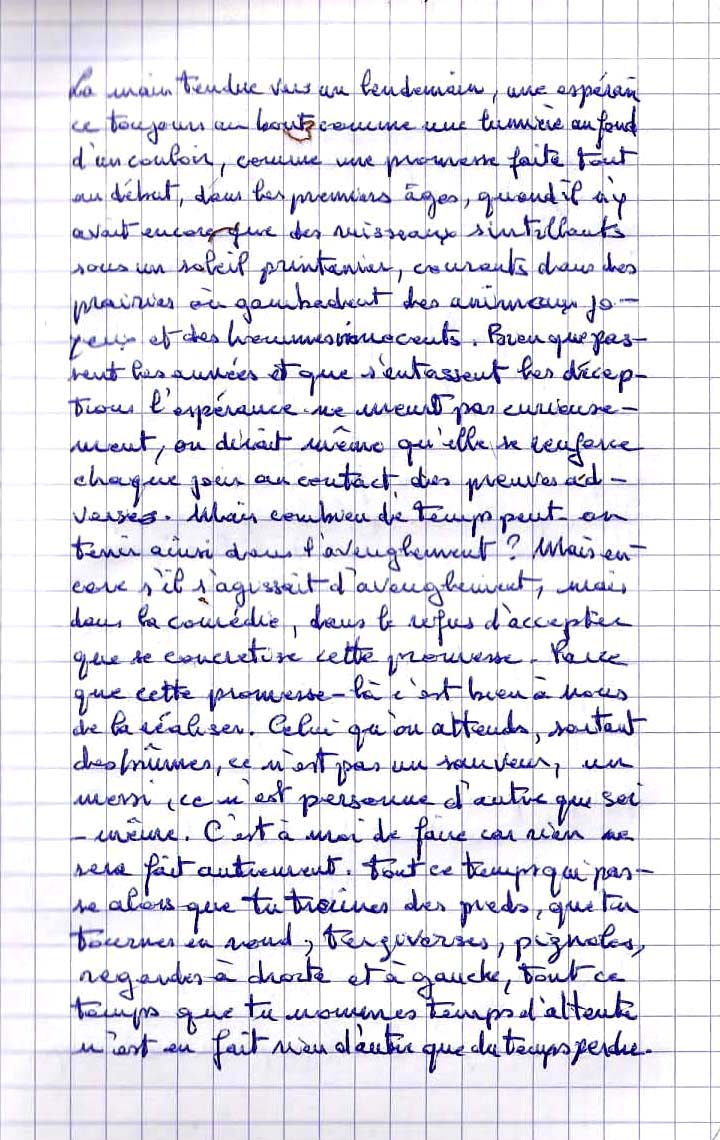 La main tendue vers un lendemain, une espéran
ce toujours au bout comme une lumière au fond
d'un couloir, comme une promesse faite tout
au début, dans les premiers âges, quand il n'y
avait encore que des ruisseaux sintillants
sous un soleil printanier, courants dans des
prairies où gambadent des animaux jo-
yeux et des hommes innocents. Bien que pas-
sent les années et que s'entassent les décep-
tions l'espérance ne meurt pas curieuse-
ment, on dirait même qu'elle se renforce
chaque jour au contact des preuves ad-
verses. Mais combien de temps peut-on
tenir ainsi dans l'aveuglement ? Mais en-
core s'il s'agissait d'aveuglement, mais
dans la comédie, dans le refus d'accepter
que se concrétise cette promesse. Parce
que cette promesse-là c'est bien à nous
de la réaliser. Celui qu'on attends, sortant
des brumes, ce n'est pas un sauveur, un
messi, ce n'est personne d'autre que soi
-même. C'est à moi de faire car rien ne
sera fait autrement. Tout ce temps qui pas-
se alors que tu traines des pieds, que tu
tournes en rond, tergiverses, pignoles,
regardes à droite et à gauche, tout ce
temps que tu nommes temps d'attente
n'est en fait rien d'autre que du temps perdu.